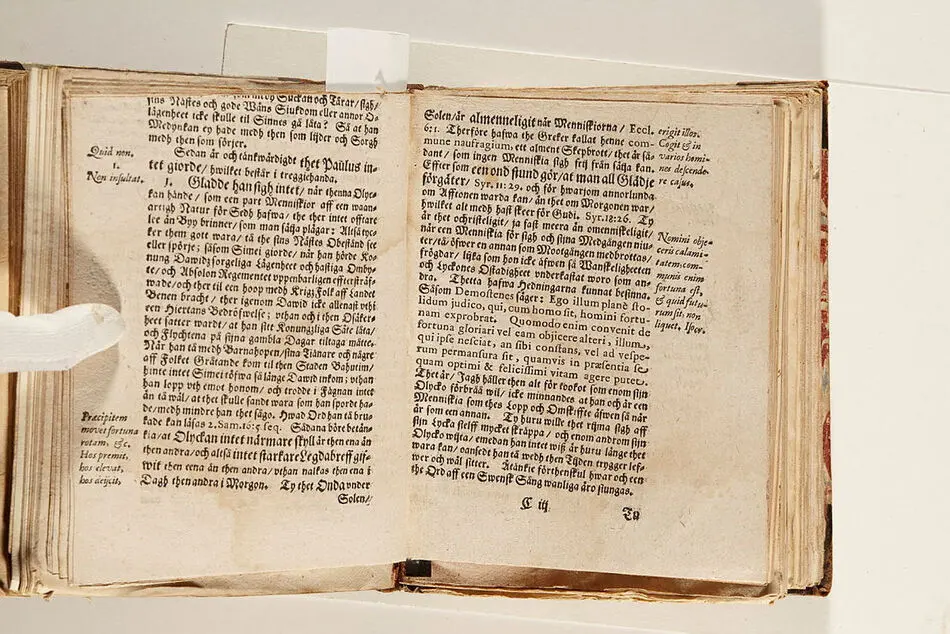 sins Nästes och gode Wäns Siukdom eller annor O-
lägenheet icke skulle til Sinnes gå låta? Så at han
Medynkan ey hade medh then som lijder och Sorgh
medh then som sörjer.
Sedan är och tänkwärdigdt thet Paulus in-
tet giorde/ hwilket består i treggiehanda.
Quid non.
1.
Non insultat.
1. Gladde han sigh intet/ när thenna Olyc-
kan hände/ som een part Menniskior aff een waan-
artigh Natur för Sedh hafwa/ the ther intet offtare
lee än Byy brinner/ som man såsa plägar: Altså tyc-
ker them gott wara/ tå the sins Nästes Obestånd see
eller spörje; såsom Simei giorde/ när han hörde Ko-
nung Dawidz sorgeliga Lägenheet och hastiga Omby-
te/ och Absolon Regementet vppenbarligen effterstråf-
wade/ och ther til een hoop medh Krigz Folk aff Landet
Benen bracht/ ther igenom Dawid icke allenast vthi
een Hiertans Bedröfwelse; vthan och i then Osäker-
heet satter wardt/ at han sitt Konungzliga Säte låta/
och Flychtena på sijna gambla Dagar tiltaga måtte.
När han tå medh Barnahopen/ sina Tiänare och någre
aff Folket Gråtande kom til then Staden Bahurim/
hinte intet Simei töfwa så länge Dawid inkom; vthan
han lopp vth emot honom/ och trodde i Fägnan intet
än tå wäl/ at thet skulle sandt wara som han sporde ha-
de/ medh mindre han thet sågo. Hwad Ordh han tå bru-
kade kan läsas 2. Sam. 16:5 seq. Sådana böre betän-
kia/ at Olyckan intet närmare skyll är then ena än
then andra/ och altså intet starkare Legdabreff gif-
wit then eena än then andra/ vthan nalkas then ena i
Dagh then andra i Morgon. Ty thet Onda vnder
Solen/
Præcipitem
movet fortuna
rotam, &c.
Hos premit,
hos elevat,
hos deijcit,
Solen/ är almenneligit når Menniskiorna/ Eccl.
6:1. Therföre hafwa the Greker kallat henne com-
mune naufragium, ett alment Skepbrott/ thet är så-
dant/ som ingen Menniskia sigh frij från sätja kan.
Effter som een ond stund gör/ at man all Glädje
förgäter/ Syr. 11:29. och för hwarjom annorlunda
om Afftonen warda kan/ än thet om Morgonen war/
hwilket alt medh hast skeer för Gudi. Syr. 18:26. Ty
är thet ochristeligit/ ja fast meera än omenniskeligit/
när een Menniskia för sigh och sijna Medgången niu-
ter/ tå/ öfwer en annan som Mootgången medbrottas/
frögdar/ lijka som hon icke äfwen så Wanskeligheeten
och Lyckones Ostadigheet vnderkastat woro som an-
dra. Thetta hafwa Hedningarna kunnat besinna.
Såsom Demostenes säger: Ego illum planè sto-
lidum judico, qui, cum homo sit, homini fortu-
nam exprobrat. Quomodo enim convenit de
fortuna gloriari vel eam objicere alteri, illum,
qui ipse nesciat, an sibi constans, vel ad vespe-
rum permansura sit, quamvis in præsentia se
quam optimi & felicissimi vitam agere putet.
Thet är/ Jagh håller then alt för tookot som enom sijn
Olycko förbråå wil/ icke minnandes at han och är een
Menniskia som thes Lopp och Omskiffte äfwen så när
är som een annan. Ty huru wille thet rijma sigh aff
sijn Lycka sielff mycket skräppa/ och enom androm sijn
Olycko wijta/ emedan han intet wiß är huru länge thet
wara kan/ oansedt han tå wedh then Tijden trygger lef-
wer och wäl sitter. Åtänkie förthenskul hwar och een
the Ord aff een Swensk Säng wanliga äro siungas.
C iij
Tå
erigit illor.
Cogit & in
varios homi-
nes descende-
re casus.
Nomini obje-
ceris calami-
tatem com-
munis enim
fortuna est,
& quid futu-
rum sit, non
liquet, Isocr.